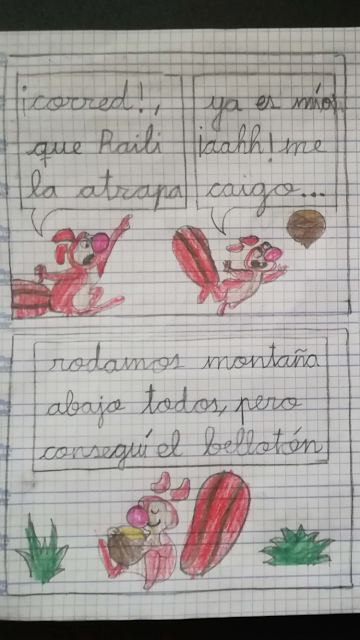 ¡corred!,
que Raili
la atrapa
ya es mío
¡aahh! me
caigo...
rodamos montaña
abajo todos, pero
conseguí el bellotón